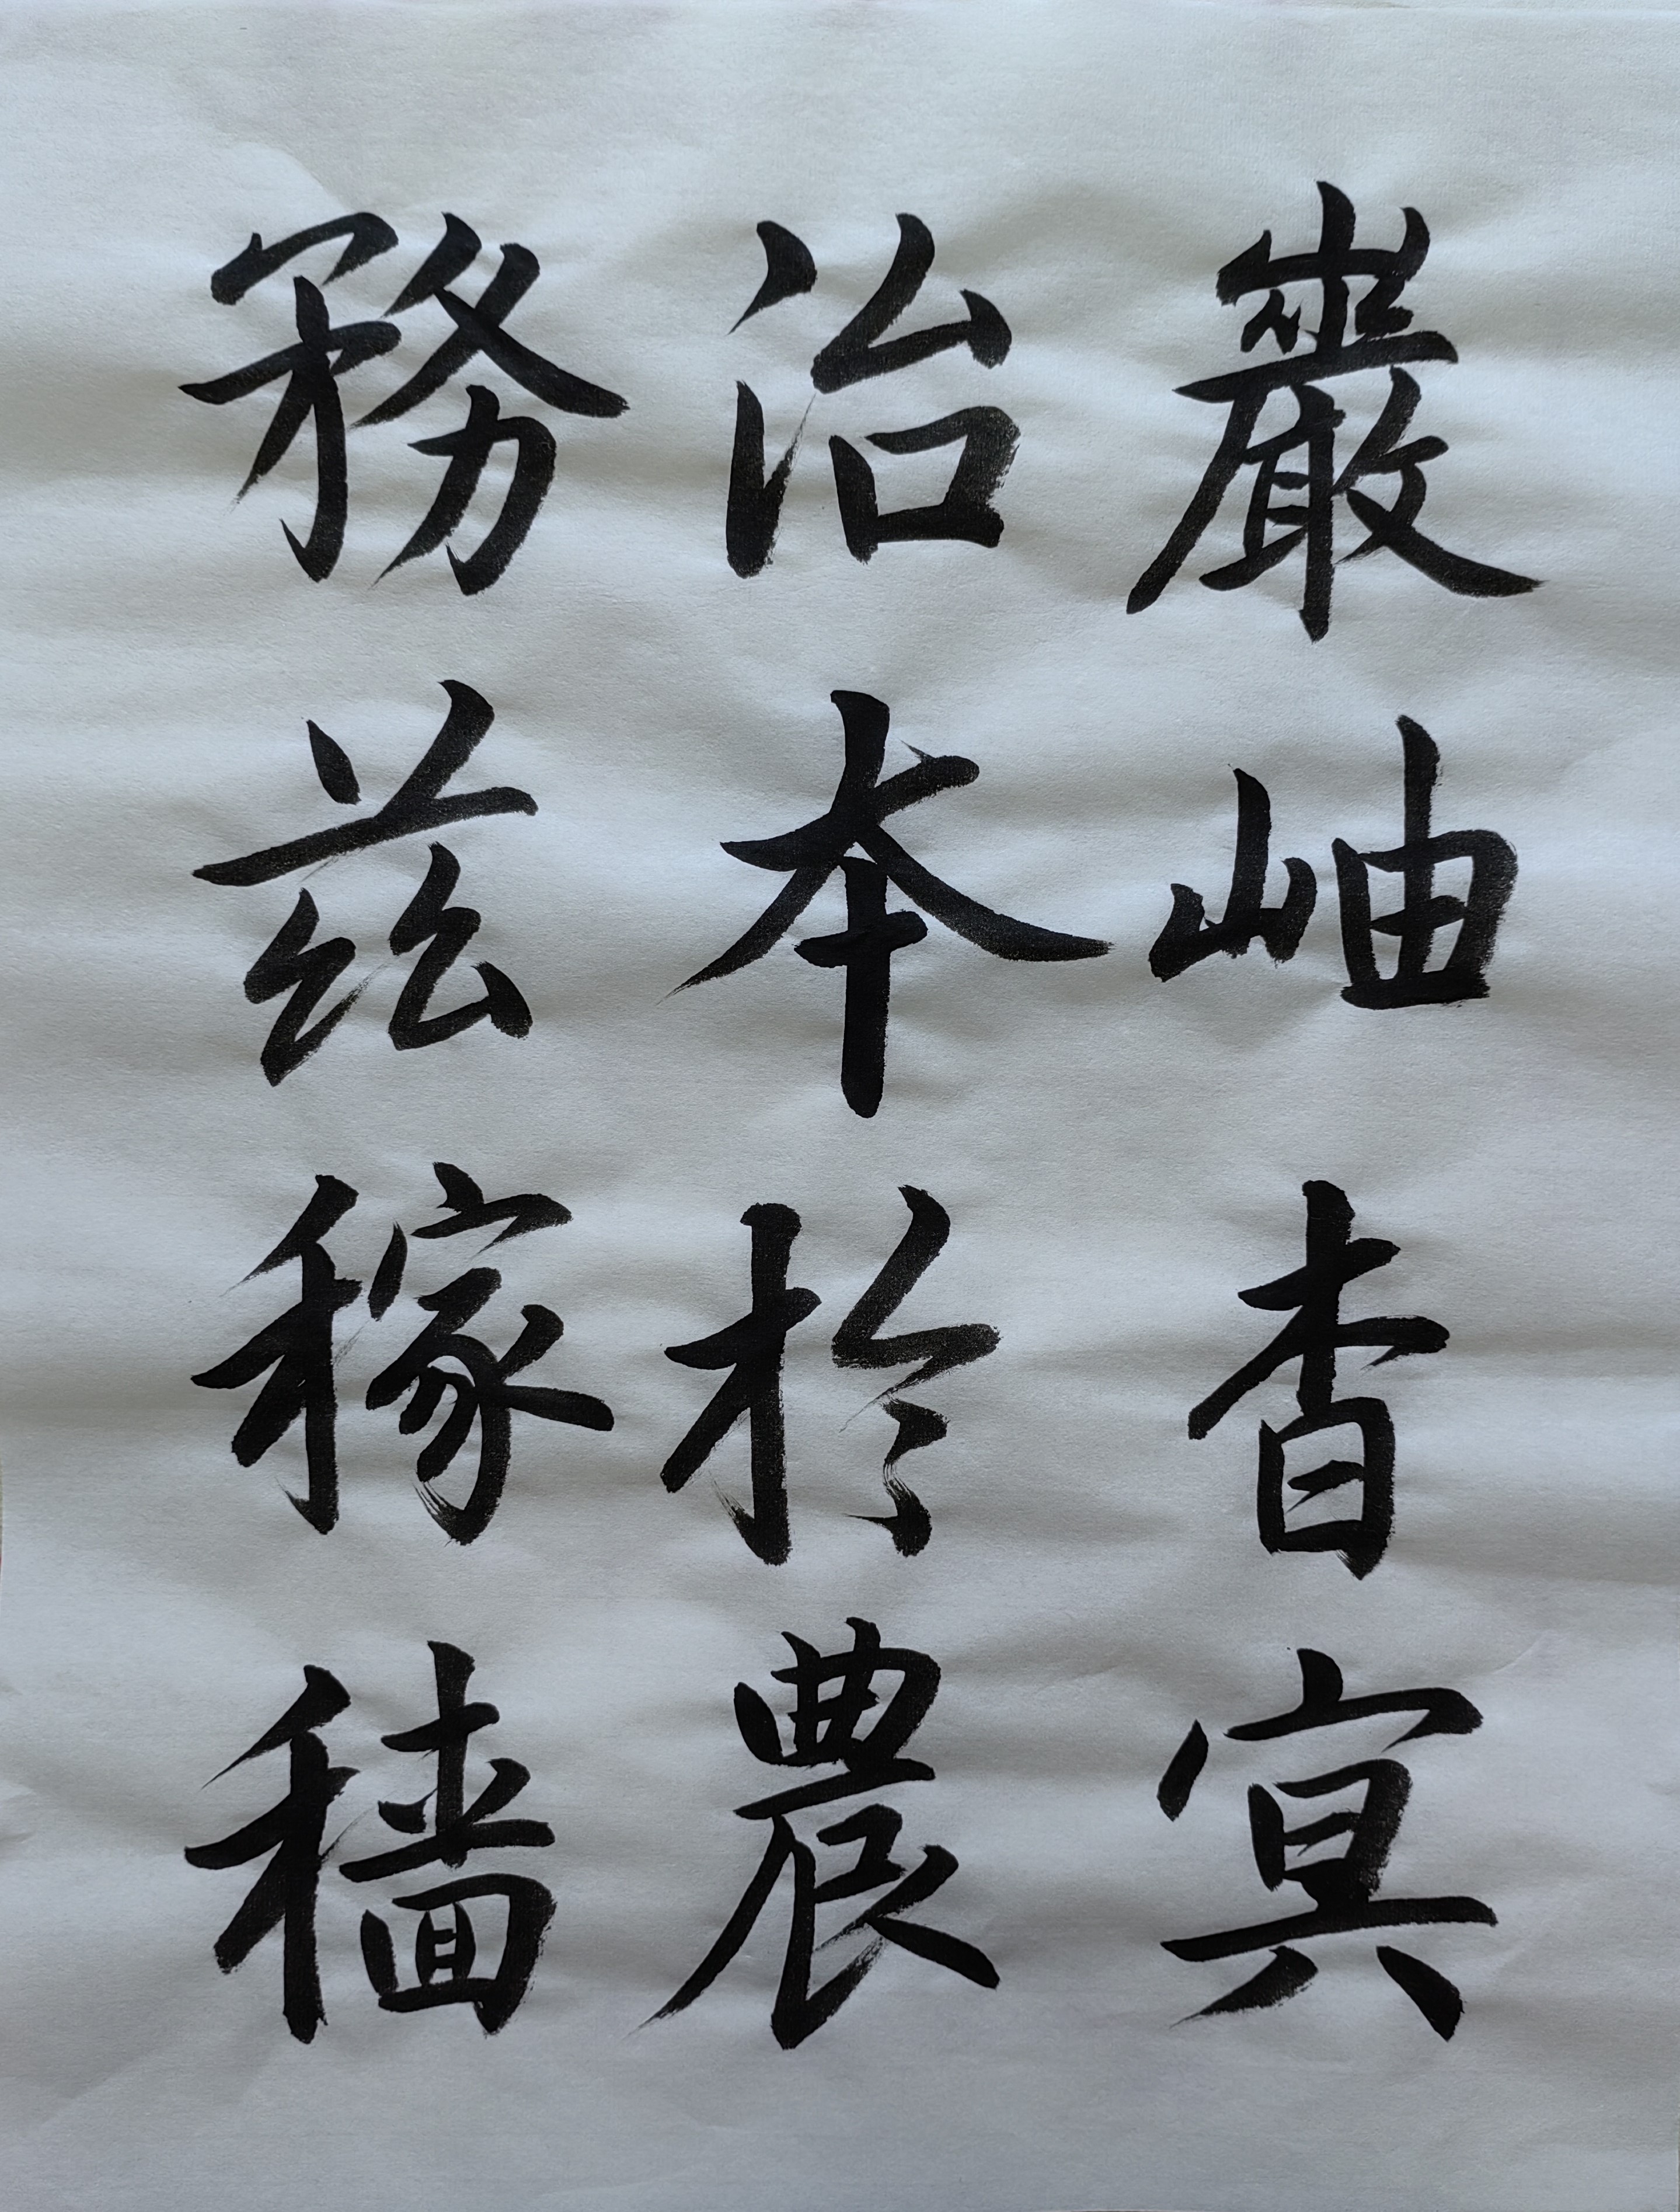 巖岫杳冥
治本於農
務茲稼穡